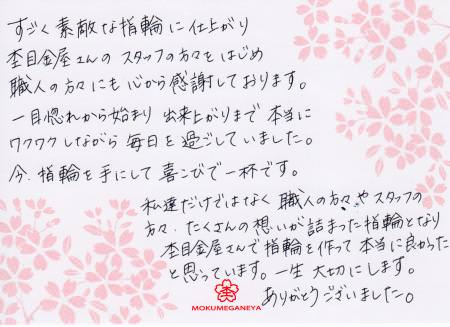 すごく素敵な指輪に仕上がり
杢目金屋さんのスタッフの方々をはじめ
職人の方々にも心から感謝しております。
一目惚れから始まり出来上がりまで本当に
ワクワクしながら毎日を過ごしていました。
今、指輪を手にして喜こびで一杯です。
私達だけではなく職人の方々やスタッフの
方々、たくさんの想いが詰まった指輪となり
杢目金屋さんで指輪を作って本当に良かった
と思っています。一生大切にします。
ありがとうございました。
MOKUMEGANEYA